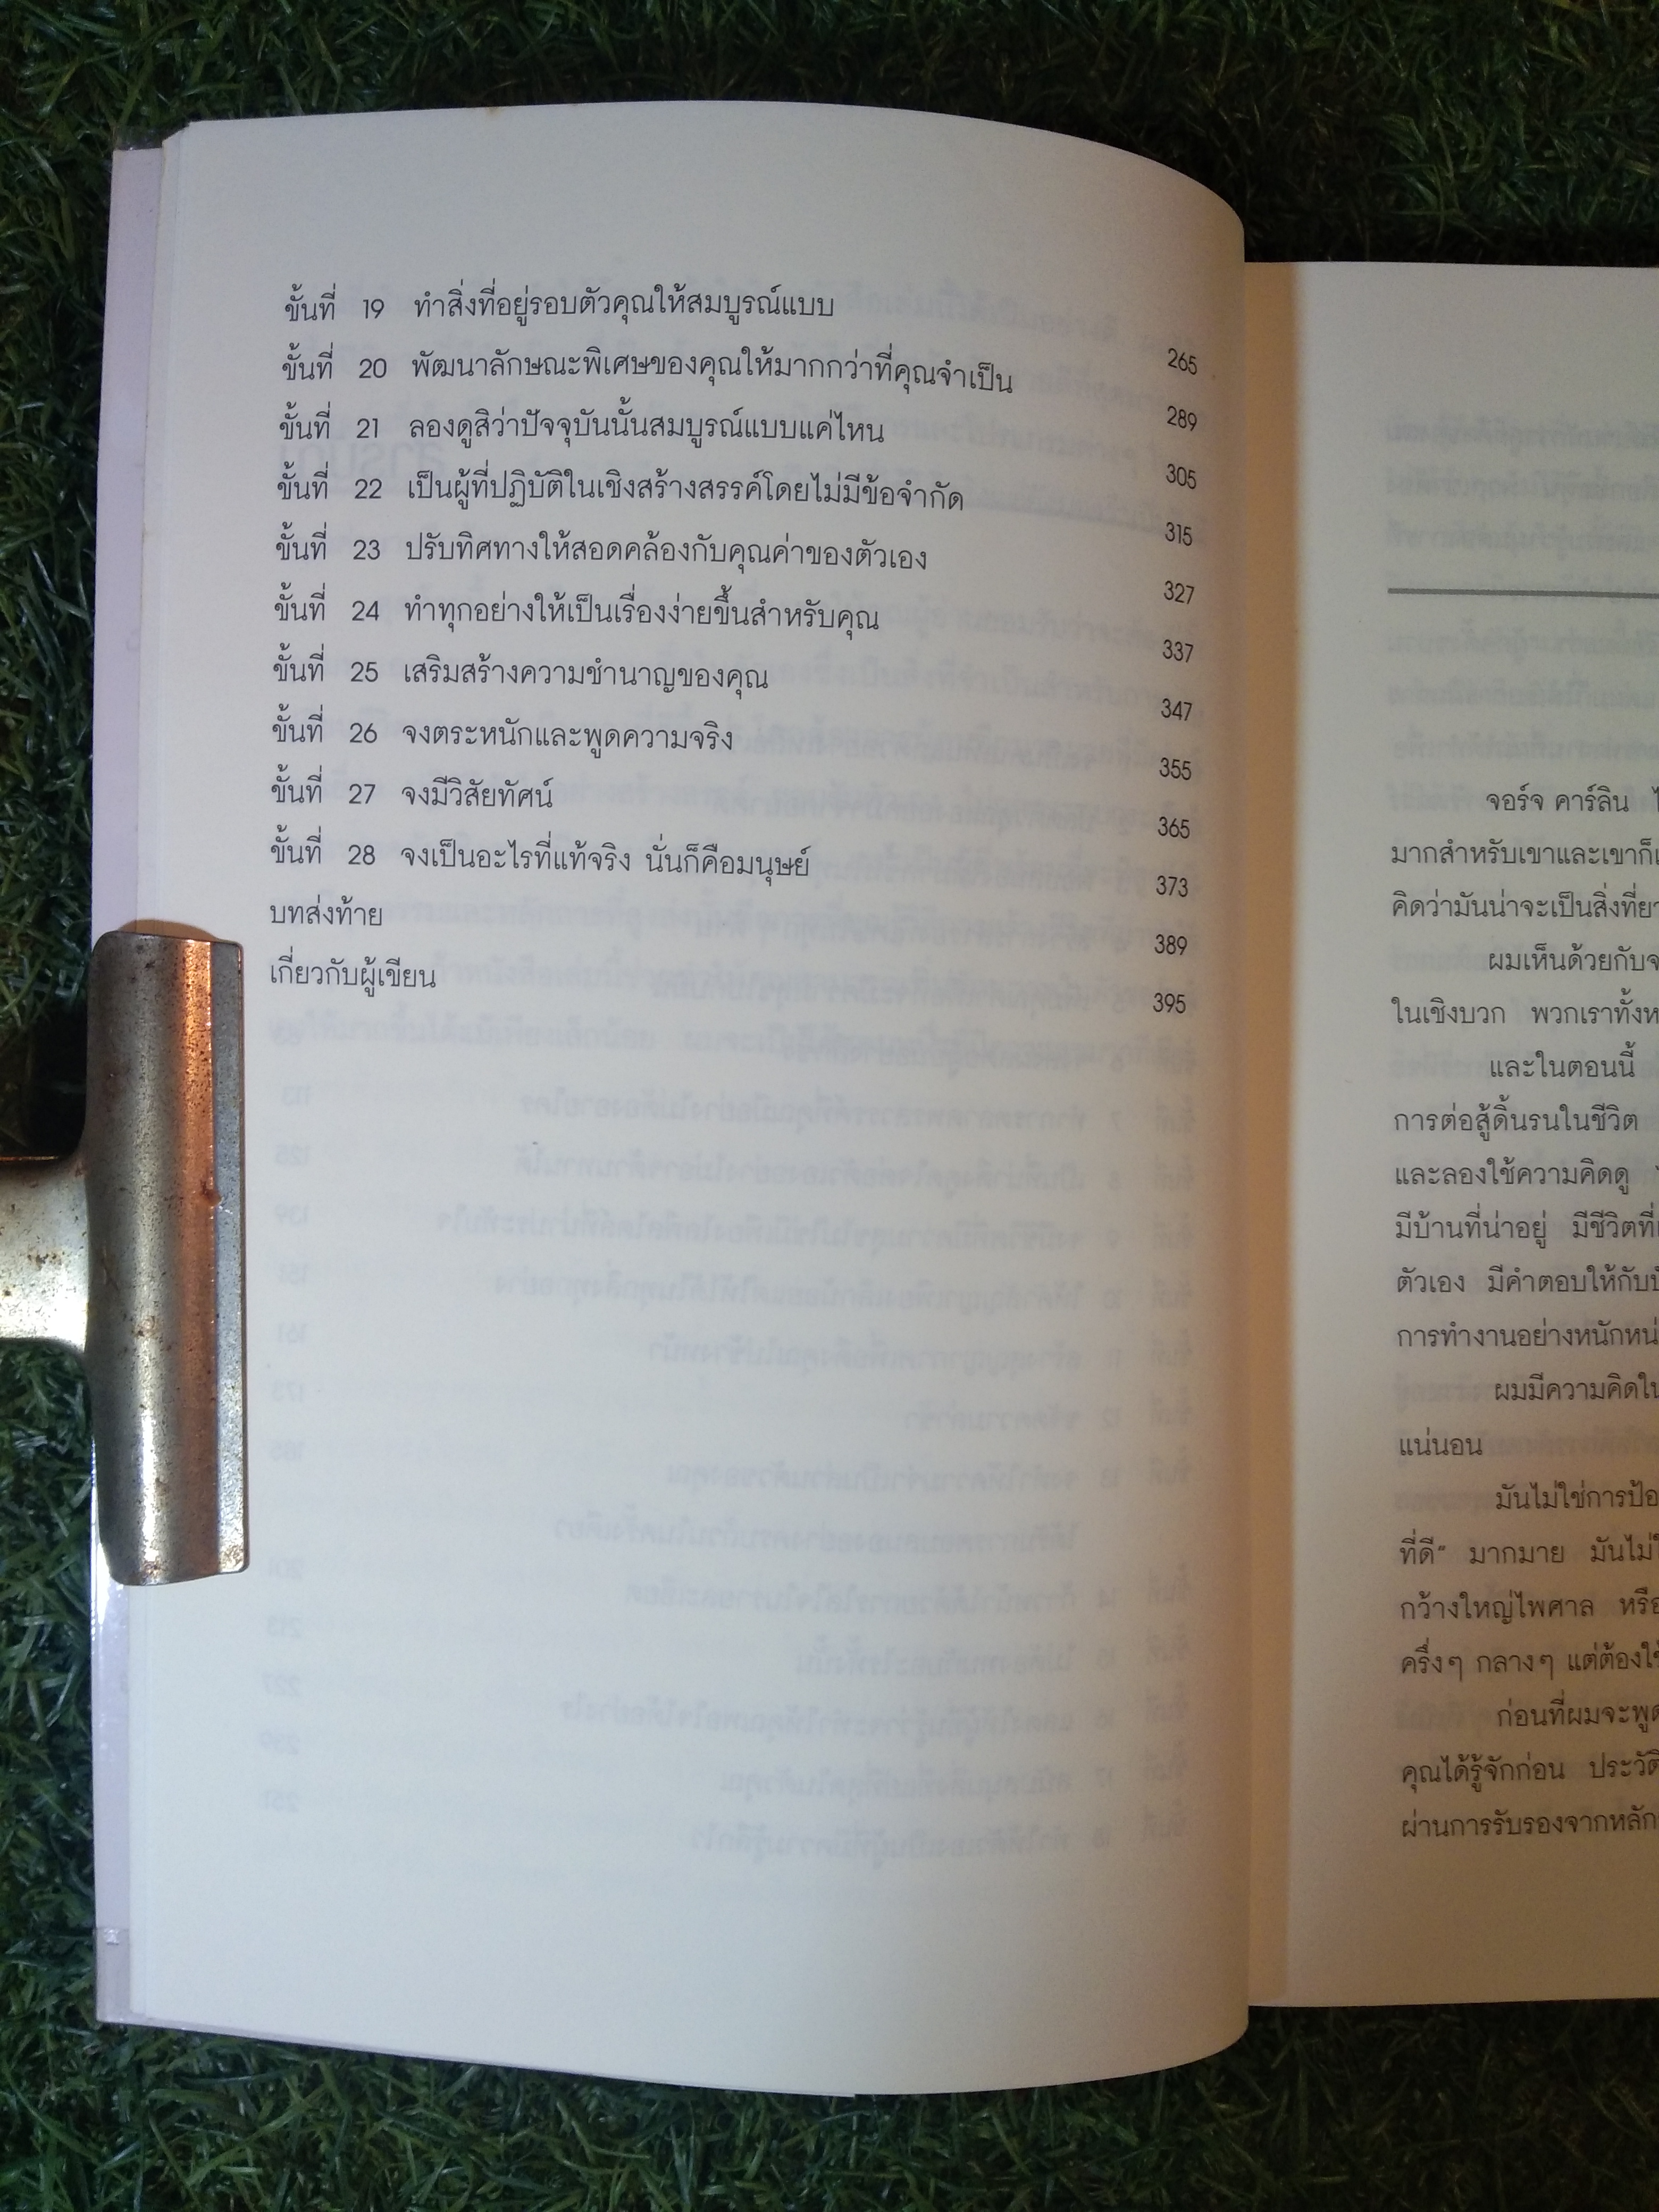 ขั้นที่ 19 ทำสิ่งที่อยู่รอบตัวคุณให้สมบูรณ์แบบ 265
ขั้นที่ 20 พัฒนาลักษณะพิเศษของคุณให้มากกว่าที่คุณจำเป็น 289
ขั้นที่ 21 ลองดูสิว่าปัจจุบันนั้นสมบูรณ์แบบแค่ไหน 305
ขั้นที่ 22 เป็นผู้ที่ปฏิบัติในเชิงสร้างสรรค์โดยไม่มีข้อจำกัด 315
ขั้นที่ 23 ปรับทิศทางให้สอดคล้องกับคุณค่าของตัวเอง 327
ขั้นที่ 24 ทำทุกอย่างให้เป็นเรื่องง่ายขึ้นสำหรับคุณ 337
ขั้นที่ 25 เสริมสร้างความชำนาญของคุณ 347
ขั้นที่ 26 จงตระหนักและพูดความจริง 355
ขั้นที่ 27 จงมีวิสัยทัศน์ 365
ขั้นที่ 28 จงเป็นอะไรที่แท้จริง นั่นก็คือมนุษย์ 373
บทส่งท้าย 389
เกี่ยวกับผู้เขียน 395
จอร์จ คาร์ลิน
มากสำหรับเขาและเขาก็
คิดว่ามันน่าจะเป็นสิ่งที่
ผมเห็นด้วยกับ
ในเชิงบวก พวกเราทั้ง
และในตอนนี้
การต่อสู้ดิ้นรนในชีวิต
และลองใช้ความคิดดู
มีบ้านที่น่าอยู่ มีชีวิตที่
ตัวเอง มีคำตอบให้กับ
การทำงานอย่างหนัก
ผมมีความคิดใน
แน่นอน
มันไม่ใช่การ
ที่ดี" มากมาย มันไม่
กว้างใหญ่ไพศาล หรือ
ครึ่งๆ กลางๆ แต่ต้องใช้
ก่อนที่ผมจะพูด
คุณได้รู้จักก่อน ประวัติ
ผ่านการรับรองจากหลัก